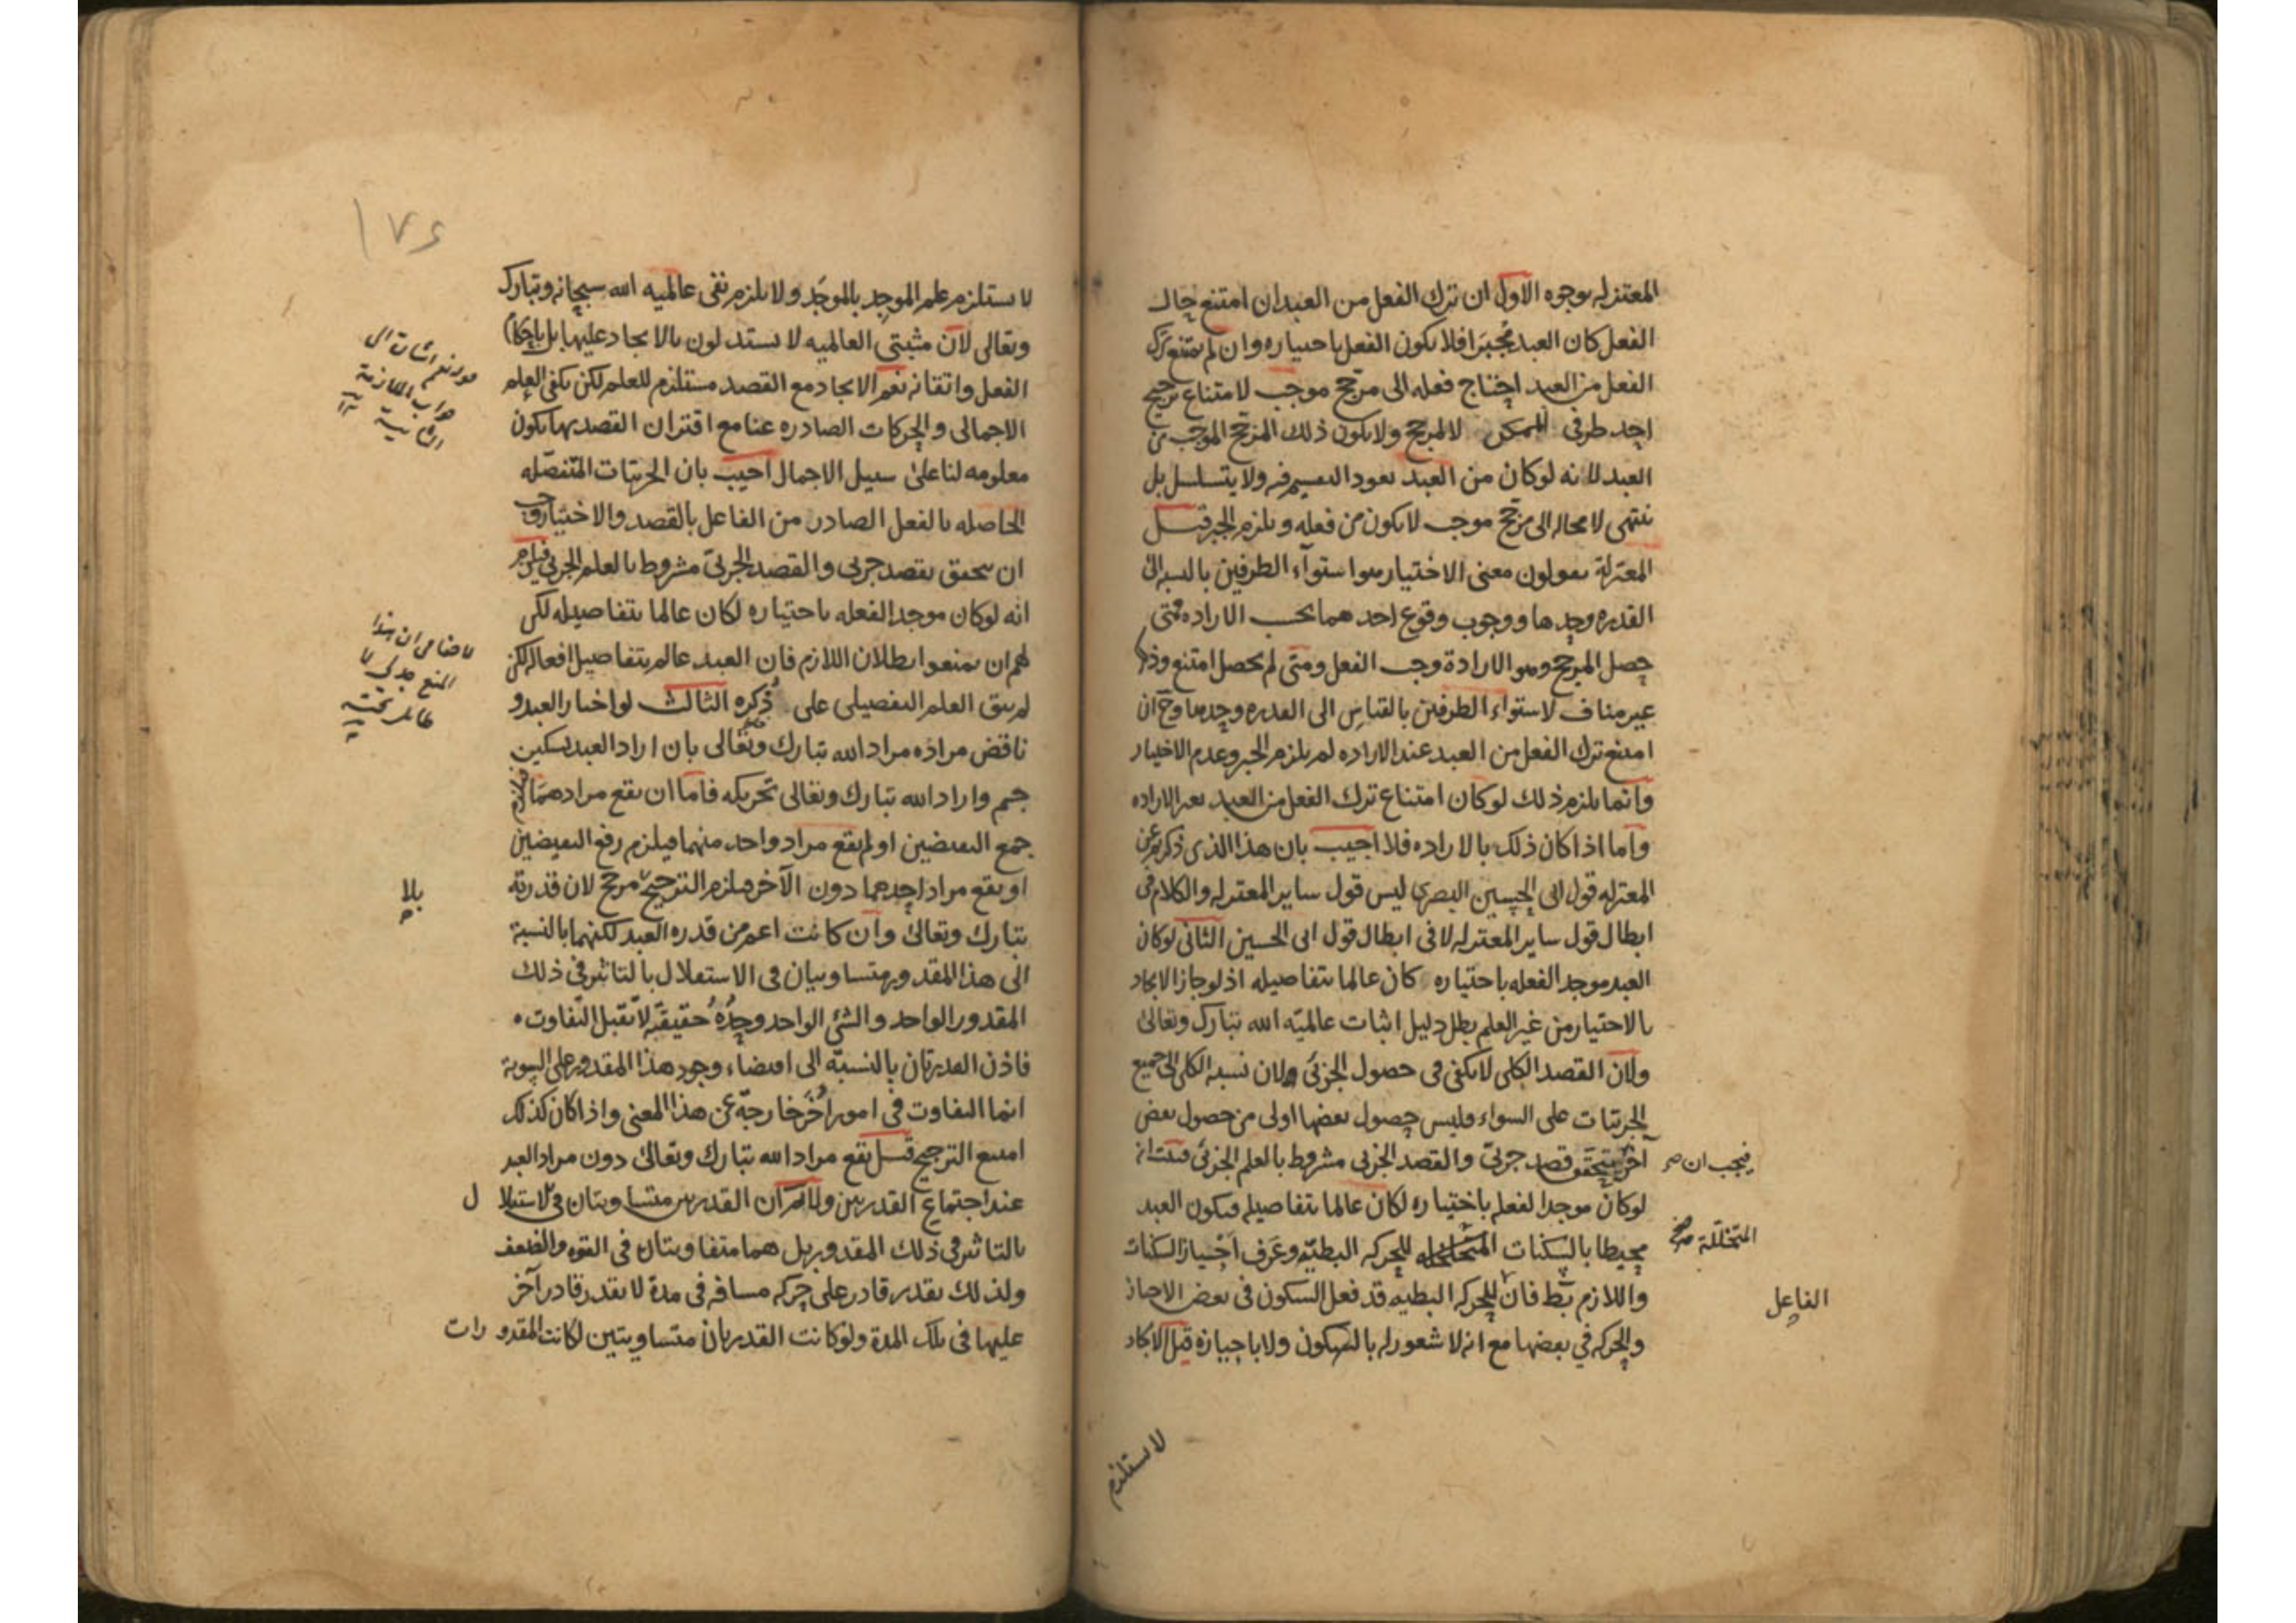 المعتزله بوجوه الاول ان ترك الفعل من العبد ان امتنع حال
الفعل كان العبد مجبرا فلا يكون الفعل باختياره وان لم يمتنع ترك
الفعل من العبد احتاج فعله الى مرجح موجب لامتناع ترجيح
احد طرفى الممكن لا لمرجح ولا يكون ذلك المرجح الموجب من
العبد لانه لو كان من العبد يعود التقسيم فيه ولا يتسلسل بل
ينتهى لا محاله الى مرجح موجب لا يكون من فعله ويلزم الجبر قيل
المعتزلة يقولون معنى الاختيار هو استواء الطرفين بالنسبه الى
القدره وحدها ووجوب وقوع احدهما بحسب الاراده فمتى
حصل المرجح وهو الارادة وجب الفعل ومتى لم يحصل امتنع وذلك
غير مناف لاستواء الطرفين بالقياس الى القدره وحدها وح ان
امتنع ترك الفعل من العبد عند الاراده لم يلزم الجبر وعدم الاختيار
وانما يلزم ذلك لو كان امتناع ترك الفعل من العبد بغير الاراده
واما اذا كان ذلك بالاراده فلا اجيب بان هذا الذى ذكرتم عن
المعتزله قول ابى الحسين البصرى ليس قول ساير المعتزله والكلام فى
ابطال قول ساير المعتزله لا فى ابطال قول ابى الحسين الثانى لو كان
العبد موجدا لفعله باختياره كان عالما بتفاصيله اذ لو جاز الايجاد
بالاختيار من غير العلم بطل دليل اثبات عالميّه الله تبارك وتعالى
ولان القصد الكلى لا يكفى فى حصول الجزئى لان نسبه الكلى الى جميع
الجزئيات على السواء فليس حصول بعضها اولى من حصول بعض
آخر يتحقق قصد جزئى والقصد الجزئى مشروط بالعلم الجزئى فثبت انه
فيجب ان صح
لو كان موجدا لفعله باختياره لكان عالما بتفاصيله فيكون العبد
محيطا بالسكنات المتخلله للحركه البطيّه وعرف احياز السكنات
المتخللة صح
واللازم بط فان للحركه البطيه قد فعل السكون فى بعض الاحياز
الفاعل
والحركه في بعضها مع انه لا شعور له بالسكون ولا باحيازه قيل الايجاد
لا يستلزم
١٧٤
لا يستلزم علم الموجد بالموجد ولا يلزم نفى عالميه الله سبحانه وتبارك
وتعالى لان مثبتي العالميه لا يستدلون بالايجاد عليها بل باحكام
الفعل واتقانه نعم الايجاد مع القصد مستلزم للعلم لكن يكفى العلم
الاجمالى والحركات الصادره عنا مع اقتران القصد بها يكون
معلومه لنا على سبيل الاجمال اجيب بان الجزئيات المنفصله
الحاصله بالفعل الصادر من الفاعل بالقصد والاختيار يجب
ان يتحقق بقصد جزئى والقصد الجزئى مشروط بالعلم الجزئى فيلزم
انه لو كان موجدا لفعله باختياره لكان عالما بتفاصيله لكن
لهم ان يمنعوا بطلان اللازم فان العبد عالم بتفاصيل افعاله لكن
لم يبق العلم التفصيلى على ذكره الثالث لو اختار العبد و
ناقض مراده مراد الله تبارك وتعالى بان اراد العبد تسكين
جسم واراد الله تبارك وتعالى تحريكه فاما ان يقع مرادهما فيلزم
جمع النقيضين او لم يقع مراد واحد منهما فيلزم رفع النقيضين
او يقع مراد احدهما دون الآخر فيلزم الترجيح مرجح لان قدرته
بلا
تبارك وتعالى وان كانت اعم من قدره العبد لكنهما بالنسبة
الى هذا المقدور متساويان فى الاستقلال بالتاثير فى ذلك
المقدور الواحد والشئ الواحد وحده حقيقيه لا يقبل التفاوت
فاذن القدرتان بالنسبة الى اقتضاء وجود هذا المقدور على السوية
انما التفاوت فى امور اخر خارجة عن هذا المعنى واذا كان كذلك
امتنع الترجيح قيل يقع مراد الله تبارك وتعالى دون مراد العبد
عند اجتماع القدرتين ولانم ان القدرتين متساويتان فى الاستقلال
بالتاثير فى ذلك المقدور بل هما متفاوتتان فى القوه والضعف
ولذلك يقدر قادر على حركه مسافه فى مدة لا يقدر قادر آخر
عليها فى تلك المدة ولو كانت القدرتان متساويتين لكانت المقدورات